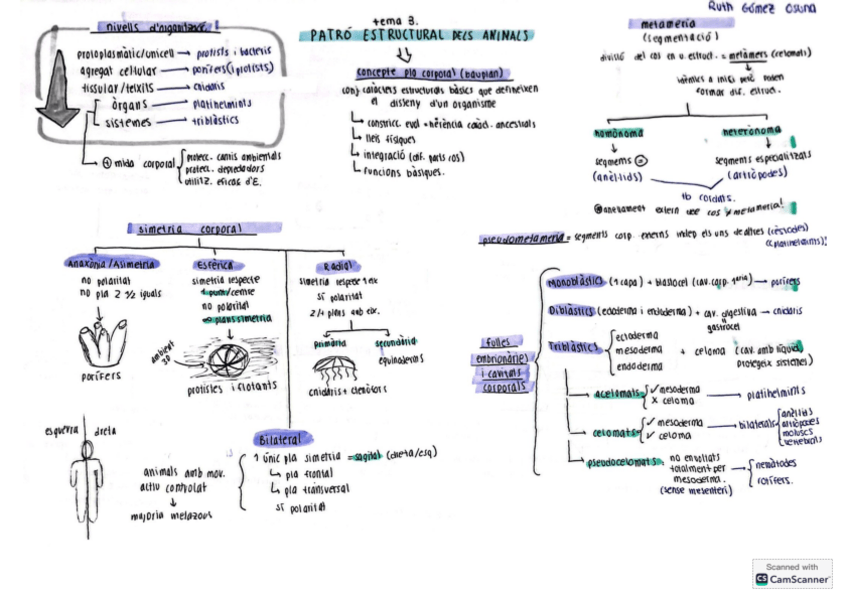 Ruth Gómez Osuna
tema 3.
PATRÓ ESTRUCTURAL DELS ANIMALS
nivells d'organització
protoplasmàtic/unicell → protists i bacteris
agregat cel·lular → porífers (i protists)
tissular/teixits → cnidaris
òrgans → platihelmints
sistemes → triblàstics
⊕ mida corporal
protecc. canvis ambientals
protecc. depredadors
utilitz. eficaç d'E.
concepte pla corporal (bauplan)
conj caràcters estructurals bàsics que defineixen
el disseny d'un organisme
lleis físiques
integració (dif. parts cos)
funcions bàsiques.
metameria
(segmentació)
divisió del cos en u. estruct. = metàmers (celomats)
formar dif. estruct.
homònoma
segments =
(anèl·lids)
heterònoma
segments especialitzats
(artròpodes)
tb cordats.
pseudometameria = segments corp. externs indep els uns de altres (cèstodes)
(platihelmints)!
simetria corporal
Anaxònia/Asimetria
no polaritat
no pla 2 ½ iguals
porífers
Esfèrica
simetria respecte
1 punt/centre
no polaritat
∞ plans simetria
ambient 3D
protistes i flotants
Radial
simetria respecte 1 eix
sí polaritat
2/+ plans amb eix.
primària
secundària
equinoderms
cnidaris + ctenòfors
Bilateral
1 únic pla simetria = sagital (dreta/esq)
pla frontal
pla transversal
sí polaritat
esquerra
dreta
animals amb mov.
actiu controlat
majoria metazous
fulles
embrionàries
i cavitats
corporals
Monoblàstics (1 capa) + blastocel (cav. corp. 1ària) → porífers
Diblàstics (ectoderma i endoderma) + cav. digestiva → cnidaris
gastrocel
Triblàstics
ectoderma
mesoderma
endoderma
+ celoma (cav. amb líquid,
protegeix sistemes)
acelomats
✓ mesoderma
x celoma
platihelmints
celomats
✓ mesoderma
✓ celoma
bilaterals
anèl·lids
artròpodes
mol·luscs
vertebrats
pseudocelomats:
no envoltats
totalment per
mesoderma.
(sense mesenteri)
nemàtodes
rotífers.
Scanned with
CS CamScanner